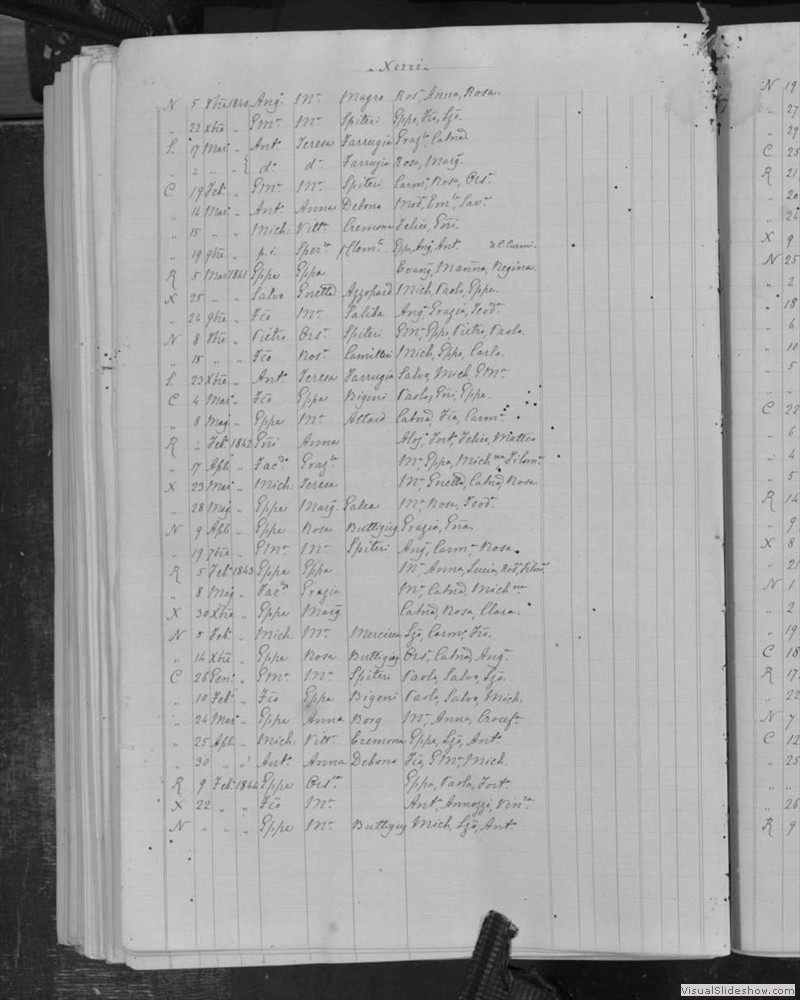 Xerri
N 5 8bre 1840 Ang. Ma Magro Rosa, Anna, Rosa.
" 22 Xbre " GMa Ma Spiteri Eppa, Fio, Ljo.
S. 17 Mar. " Anto Teresa Farrugia Grazla, Catna
" " " " do do Farrugia Rosa, Marga
C 19 Feb. " GMa Ma Spiteri Carma, Rosa, Orsa.
" 14 Mar. " Anto Anna Debono
" 15 " " Mich. Vitta Cremona Felice, Eñi.
" 19 9bre " p.i. Spera Ang. Ant.
R 5 Mar 1841 Eppe Eppa Evang. Manna, Regina
X 25 " " Salvo Enetta Azzopard Mich, Paolo, Eppe.
" 24 9bre " Fio Ma Saliba Ang. Grazia, Teoda
N 8 8bre " Pietro Orsa Spiteri GMa, Eppe, Pietro, Paolo
" 15 " " Fio Rosa Camilleri Mich, Eppe, Carlo.
S. 23 Xbre " Anto Teresa Farrugia Salvo, Mich, GMa
C 4 Mar. " Fio Eppa Bigeni Paolo, Eñi, Eppe.
" 8 Mag. " Eppe Ma Attard Catna, Fio, Carma
R " Feb. 1842 Eñi Anna Aloj, Fort, Felice, Matteo
" 17 Apl. " Grazla Ma, Eppa, Michna, Filoma
X 23 Mar. " Mich. Teresa Ma Enetta, Catna, Rosa
" 28 Mag. " Eppe Marga Galea Ma Rosa, Teoda
N 9 Apl. " Eppe Rosa Buttigieg Grazia, Eña.
" 19 7bre " GMa Ma Spiteri Ang. Carma Rosa.
R 5 Feb. 1843 Eppe Eppa Ma Anna, Lucia,
" 8 Mag. " Grazia Ma, Catna, Michna
X 30 Xbre " Eppe Marga Catna, Rosa, Clara.
N 5 Feb. " Mich. Ma Mercieca Ljo, Carmo, Fio.
" 14 Xbre " Eppe Rosa Buttigieg Orsa, Catna, Anga
C 26 Gen. " GMa Ma Spiteri Paolo, Salvo, Ljo.
" 10 Feb. " Fio Eppa Bigeni Paolo, Salvo, Mich.
" 24 Mar. " Eppe Anna Borg Ma, Anna, Crocefa
" 25 Apl. " Mich. Vitta Cremona Eppe, Ljo, Anto
" 30 " " Anto Anna Debono Fio, GMa, Mich.
R 9 Feb. 1844 Eppe Orsla Eppe, Paolo, Forto
X 22 " " Fio Ma Anta, Annozzi,
N " " " Eppe Ma Buttigieg Mich, Ljo, Anto
N 19
" 27
" 29
C 25
R 21
" 20
" 24
X 9
N 25
" 2
" 18
" 6
" 10
" 5
C 22
" 6
" 4
" 5
R 14
" 9
X 8
" 21
N 1
" 2
" 19
C 18
R 17
" 22
N 7
C 12
" 25
" "
" 26
R 9
VisualSlideshow.com